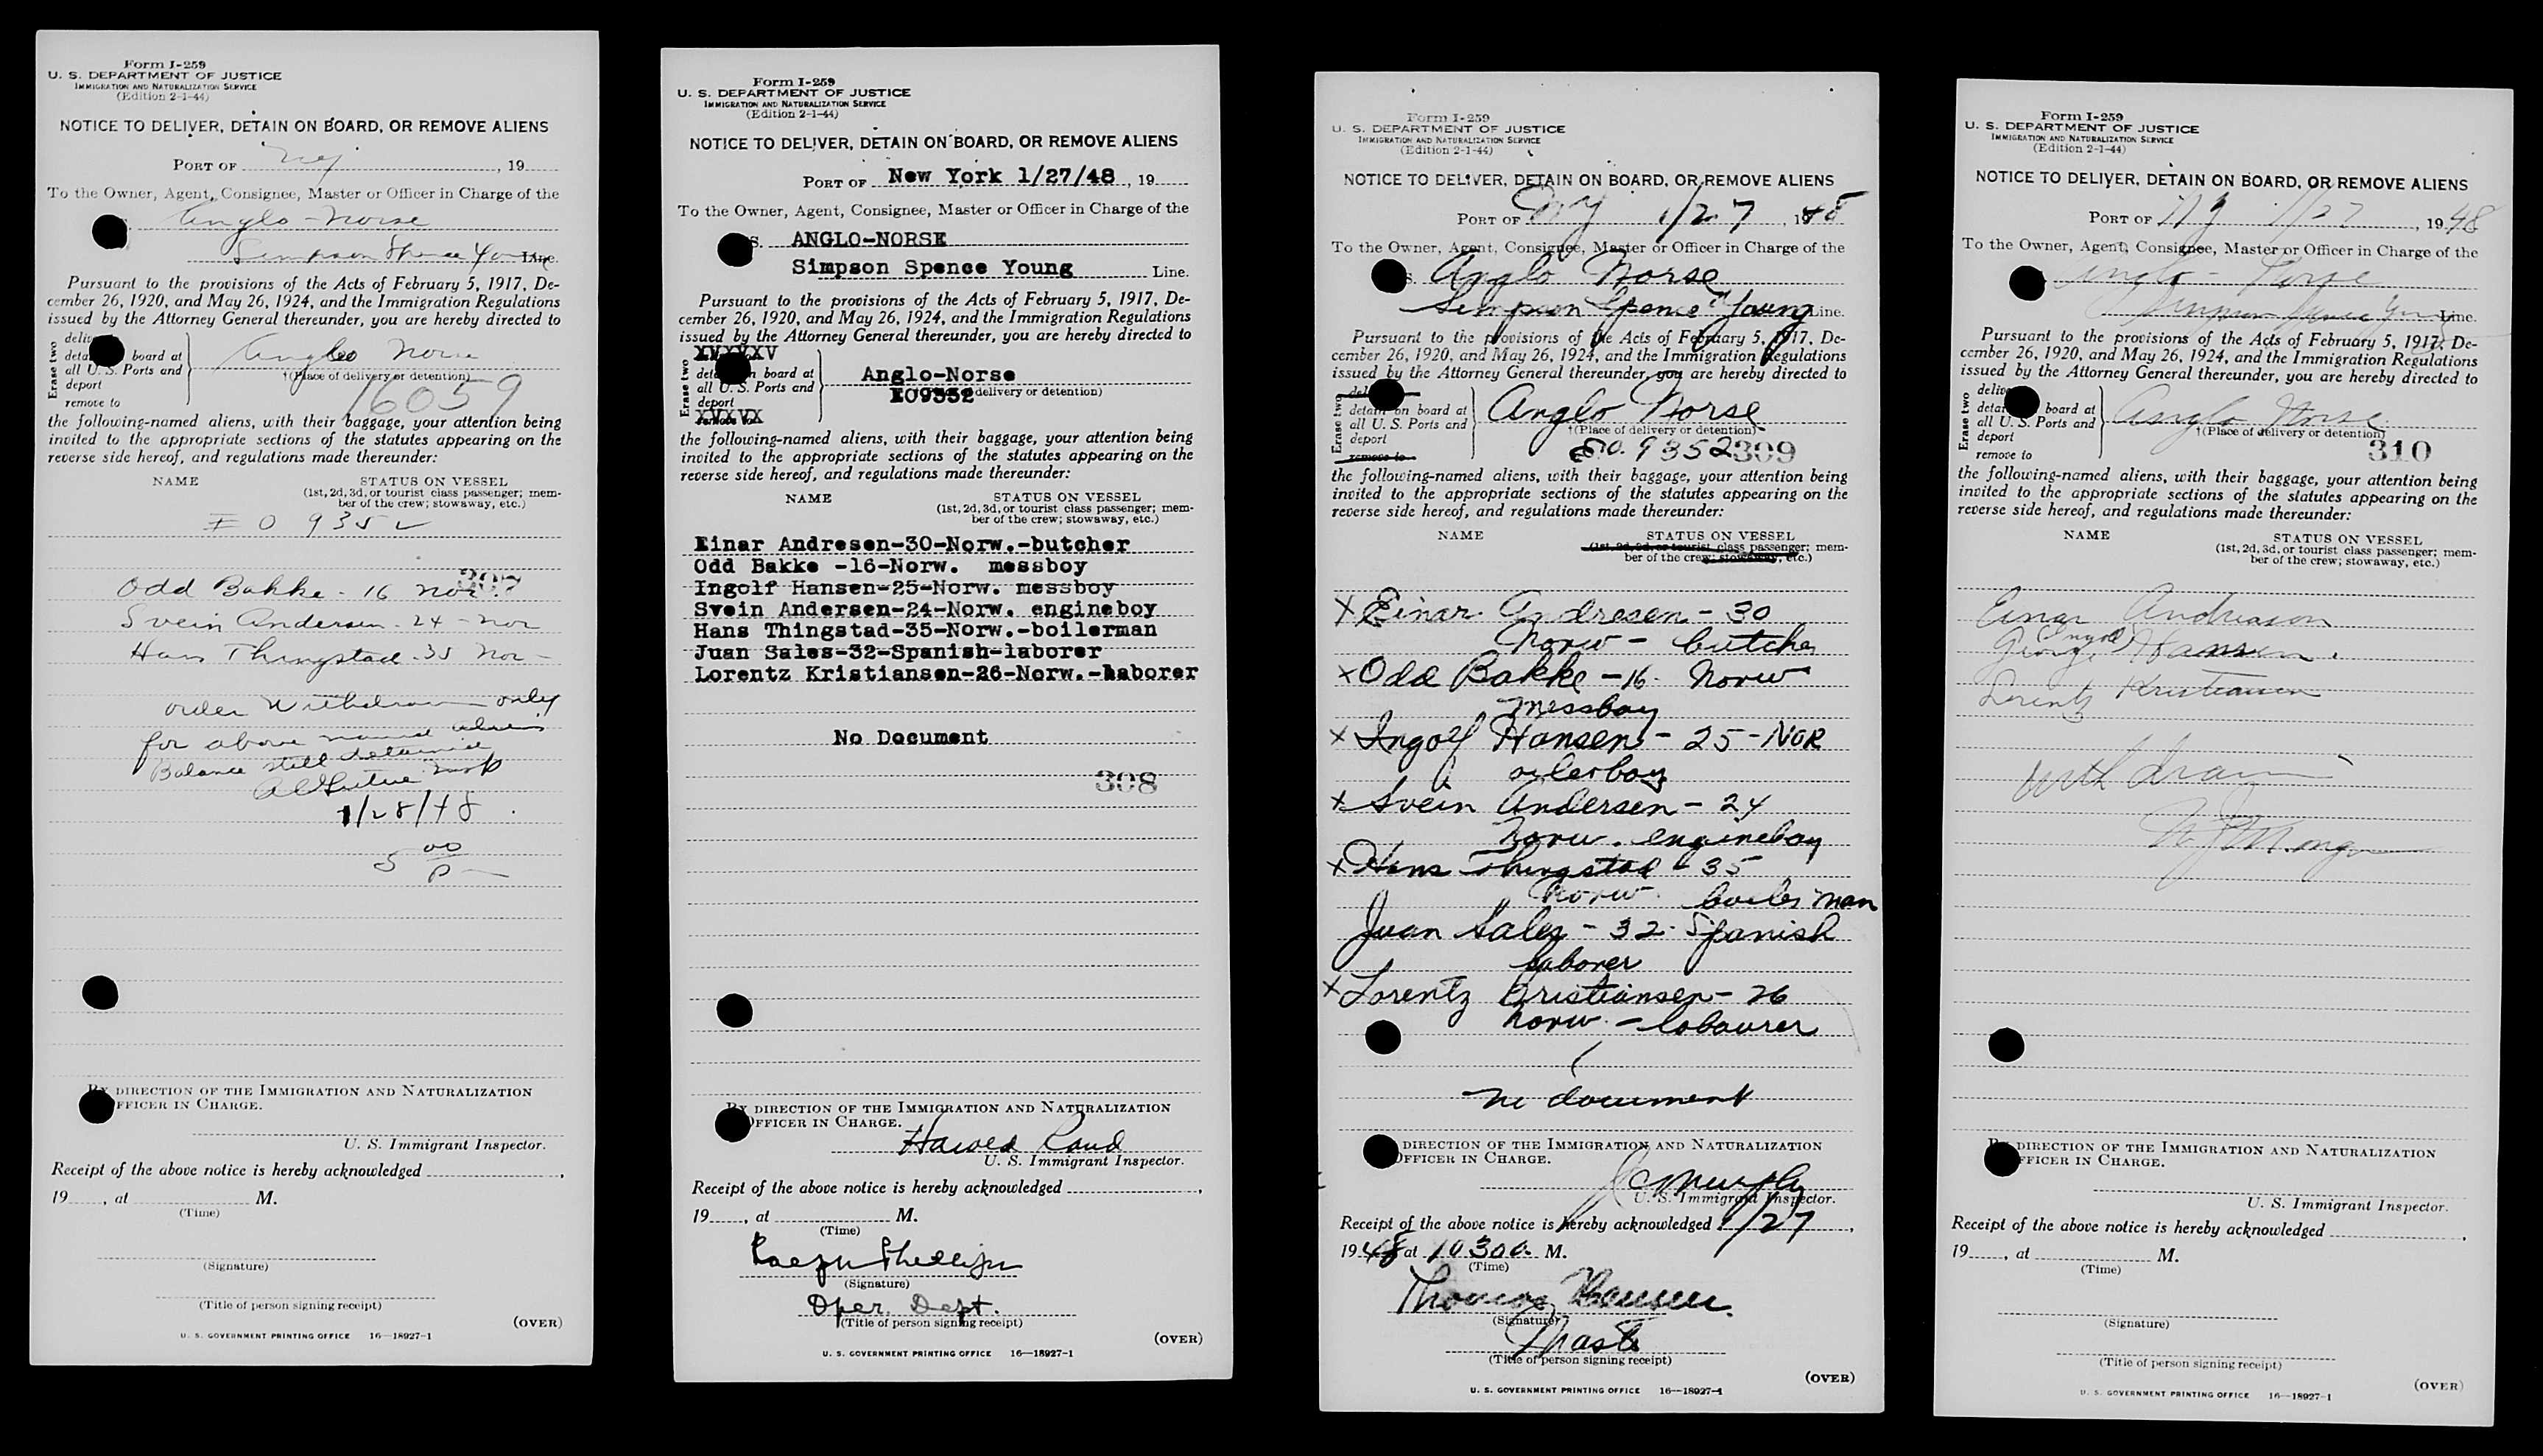 Form I-259
U. S. DEPARTMENT OF JUSTICE
IMMIGRATION AND NATURALIZATION SERVICE
(Edition 2-1-44)
NOTICE TO DELIVER, DETAIN ON BOARD, OR REMOVE ALIENS
PORT OF NY, 19
To the Owner, Agent, Consignee, Master or Officer in Charge of the
S. Anglo-Norse
Simpson Spence Young Line.
Pursuant to the provisions of the Acts of February 5, 1917, De-
cember 26, 1920, and May 26, 1924, and the Immigration Regulations
issued by the Attorney General thereunder, you are hereby directed to
Erase two
board at
all U. S. Ports and
deport
remove to
Anglo Norse
†(Place of delivery or detention)
16059
the following-named aliens, with their baggage, your attention being
invited to the appropriate sections of the statutes appearing on the
reverse side hereof, and regulations made thereunder:
NAME STATUS ON VESSEL
(1st, 2d, 3d, or tourist class passenger; mem-
ber of the crew; stowaway, etc.)
I O 9352
307
Odd Bakke - 16 Nor
Svein Andersen - 24 - Nor
Hans Thingstad - 35 Nor -
order Withdrawn only
for above named aliens
Balance still detained
1/28/48
5 00
P
BY DIRECTION OF THE IMMIGRATION AND NATURALIZATION
OFFICER IN CHARGE.
U. S. Immigrant Inspector.
Receipt of the above notice is hereby acknowledged ,
19 , at M.
(Time)
(Signature)
(Title of person signing receipt)
(OVER)
U. S. GOVERNMENT PRINTING OFFICE 16—18927-1
Form I-259
U. S. DEPARTMENT OF JUSTICE
IMMIGRATION AND NATURALIZATION SERVICE
(Edition 2-1-44)
NOTICE TO DELIVER, DETAIN ON BOARD, OR REMOVE ALIENS
PORT OF New York 1/27/48, 19
To the Owner, Agent, Consignee, Master or Officer in Charge of the
S. ANGLO-NORSE
Simpson Spence Young Line.
Pursuant to the provisions of the Acts of February 5, 1917, De-
cember 26, 1920, and May 26, 1924, and the Immigration Regulations
issued by the Attorney General thereunder, you are hereby directed to
Erase two
XVXVXXV
board at
all U. S. Ports and
deport
XVXVXX
Anglo-Norse
I09352 delivery or detention)
the following-named aliens, with their baggage, your attention being
invited to the appropriate sections of the statutes appearing on the
reverse side hereof, and regulations made thereunder:
NAME STATUS ON VESSEL
(1st, 2d, 3d, or tourist class passenger; mem-
ber of the crew; stowaway, etc.)
Einar Andresen-30-Norw.-butcher
Odd Bakke -16-Norw. messboy
Ingolf Hansen-25-Norw. messboy
Svein Andersen-24-Norw. engineboy
Hans Thingstad-35-Norw.-boilerman
Juan Sales-32-Spanish-laborer
Lorentz Kristiansen-26-Norw.-laborer
No Document
308
BY DIRECTION OF THE IMMIGRATION AND NATURALIZATION
OFFICER IN CHARGE.
Harold Rand
U. S. Immigrant Inspector.
Receipt of the above notice is hereby acknowledged ,
19 , at M.
(Time)
(Signature)
Oper. Dept.
(Title of person signing receipt)
(OVER)
U. S. GOVERNMENT PRINTING OFFICE 16—18927-1
Form I-259
U. S. DEPARTMENT OF JUSTICE
IMMIGRATION AND NATURALIZATION SERVICE
(Edition 2-1-44)
NOTICE TO DELIVER, DETAIN ON BOARD, OR REMOVE ALIENS
PORT OF NY 1/27, 1948
To the Owner, Agent, Consignee, Master or Officer in Charge of the
S. Anglo Norse
Simpson Spence Young Line.
Pursuant to the provisions of the Acts of February 5, 1917, De-
cember 26, 1920, and May 26, 1924, and the Immigration Regulations
issued by the Attorney General thereunder, you are hereby directed to
Erase two
detain on board at
all U. S. Ports and
deport
remove to
Anglo Norse
†(Place of delivery or detention)
9352 309
the following-named aliens, with their baggage, your attention being
invited to the appropriate sections of the statutes appearing on the
reverse side hereof, and regulations made thereunder:
NAME STATUS ON VESSEL
(1st, 2d, 3d, or tourist class passenger; mem-
ber of the crew; stowaway, etc.)
x Einar Andresen - 30
Norw - butcher
x Odd Bakke - 16 - Norw
messboy
x Ingolf Hansen - 25 - NOR
oilerboy
x Svein Andersen - 24
Norw. engineboy
x Hans Thingstad - 35
Norw. boilerman
Juan Sales - 32 - Spanish
laborer
x Lorentz Kristiansen - 26
Norw. - labourer
no document
DIRECTION OF THE IMMIGRATION AND NATURALIZATION
OFFICER IN CHARGE.
Murphy
U. S. Immigrant Inspector.
Receipt of the above notice is hereby acknowledged 1/27,
1948 at 10 30 a. M.
(Time)
Thomas Hansen.
(Signature)
Master
(Title of person signing receipt)
(OVER)
U. S. GOVERNMENT PRINTING OFFICE 16—18927-1
Form I-259
U. S. DEPARTMENT OF JUSTICE
IMMIGRATION AND NATURALIZATION SERVICE
(Edition 2-1-44)
NOTICE TO DELIVER, DETAIN ON BOARD, OR REMOVE ALIENS
PORT OF NY 1/27, 1948
To the Owner, Agent, Consignee, Master or Officer in Charge of the
Anglo - Norse
Simpson Spence Young Line.
Pursuant to the provisions of the Acts of February 5, 1917, De-
cember 26, 1920, and May 26, 1924, and the Immigration Regulations
issued by the Attorney General thereunder, you are hereby directed to
Erase two
board at
all U. S. Ports and
deport
remove to
Anglo Norse
†(Place of delivery or detention)
310
the following-named aliens, with their baggage, your attention being
invited to the appropriate sections of the statutes appearing on the
reverse side hereof, and regulations made thereunder:
NAME STATUS ON VESSEL
(1st, 2d, 3d, or tourist class passenger; mem-
ber of the crew; stowaway, etc.)
Einar Andreason
Ingolf
George Hansen.
Lorentz Kristiansen
withdrawn
BY DIRECTION OF THE IMMIGRATION AND NATURALIZATION
OFFICER IN CHARGE.
U. S. Immigrant Inspector.
Receipt of the above notice is hereby acknowledged ,
19 , at M.
(Time)
(Signature)
(Title of person signing receipt)
(OVER)
U. S. GOVERNMENT PRINTING OFFICE 16—18927-1